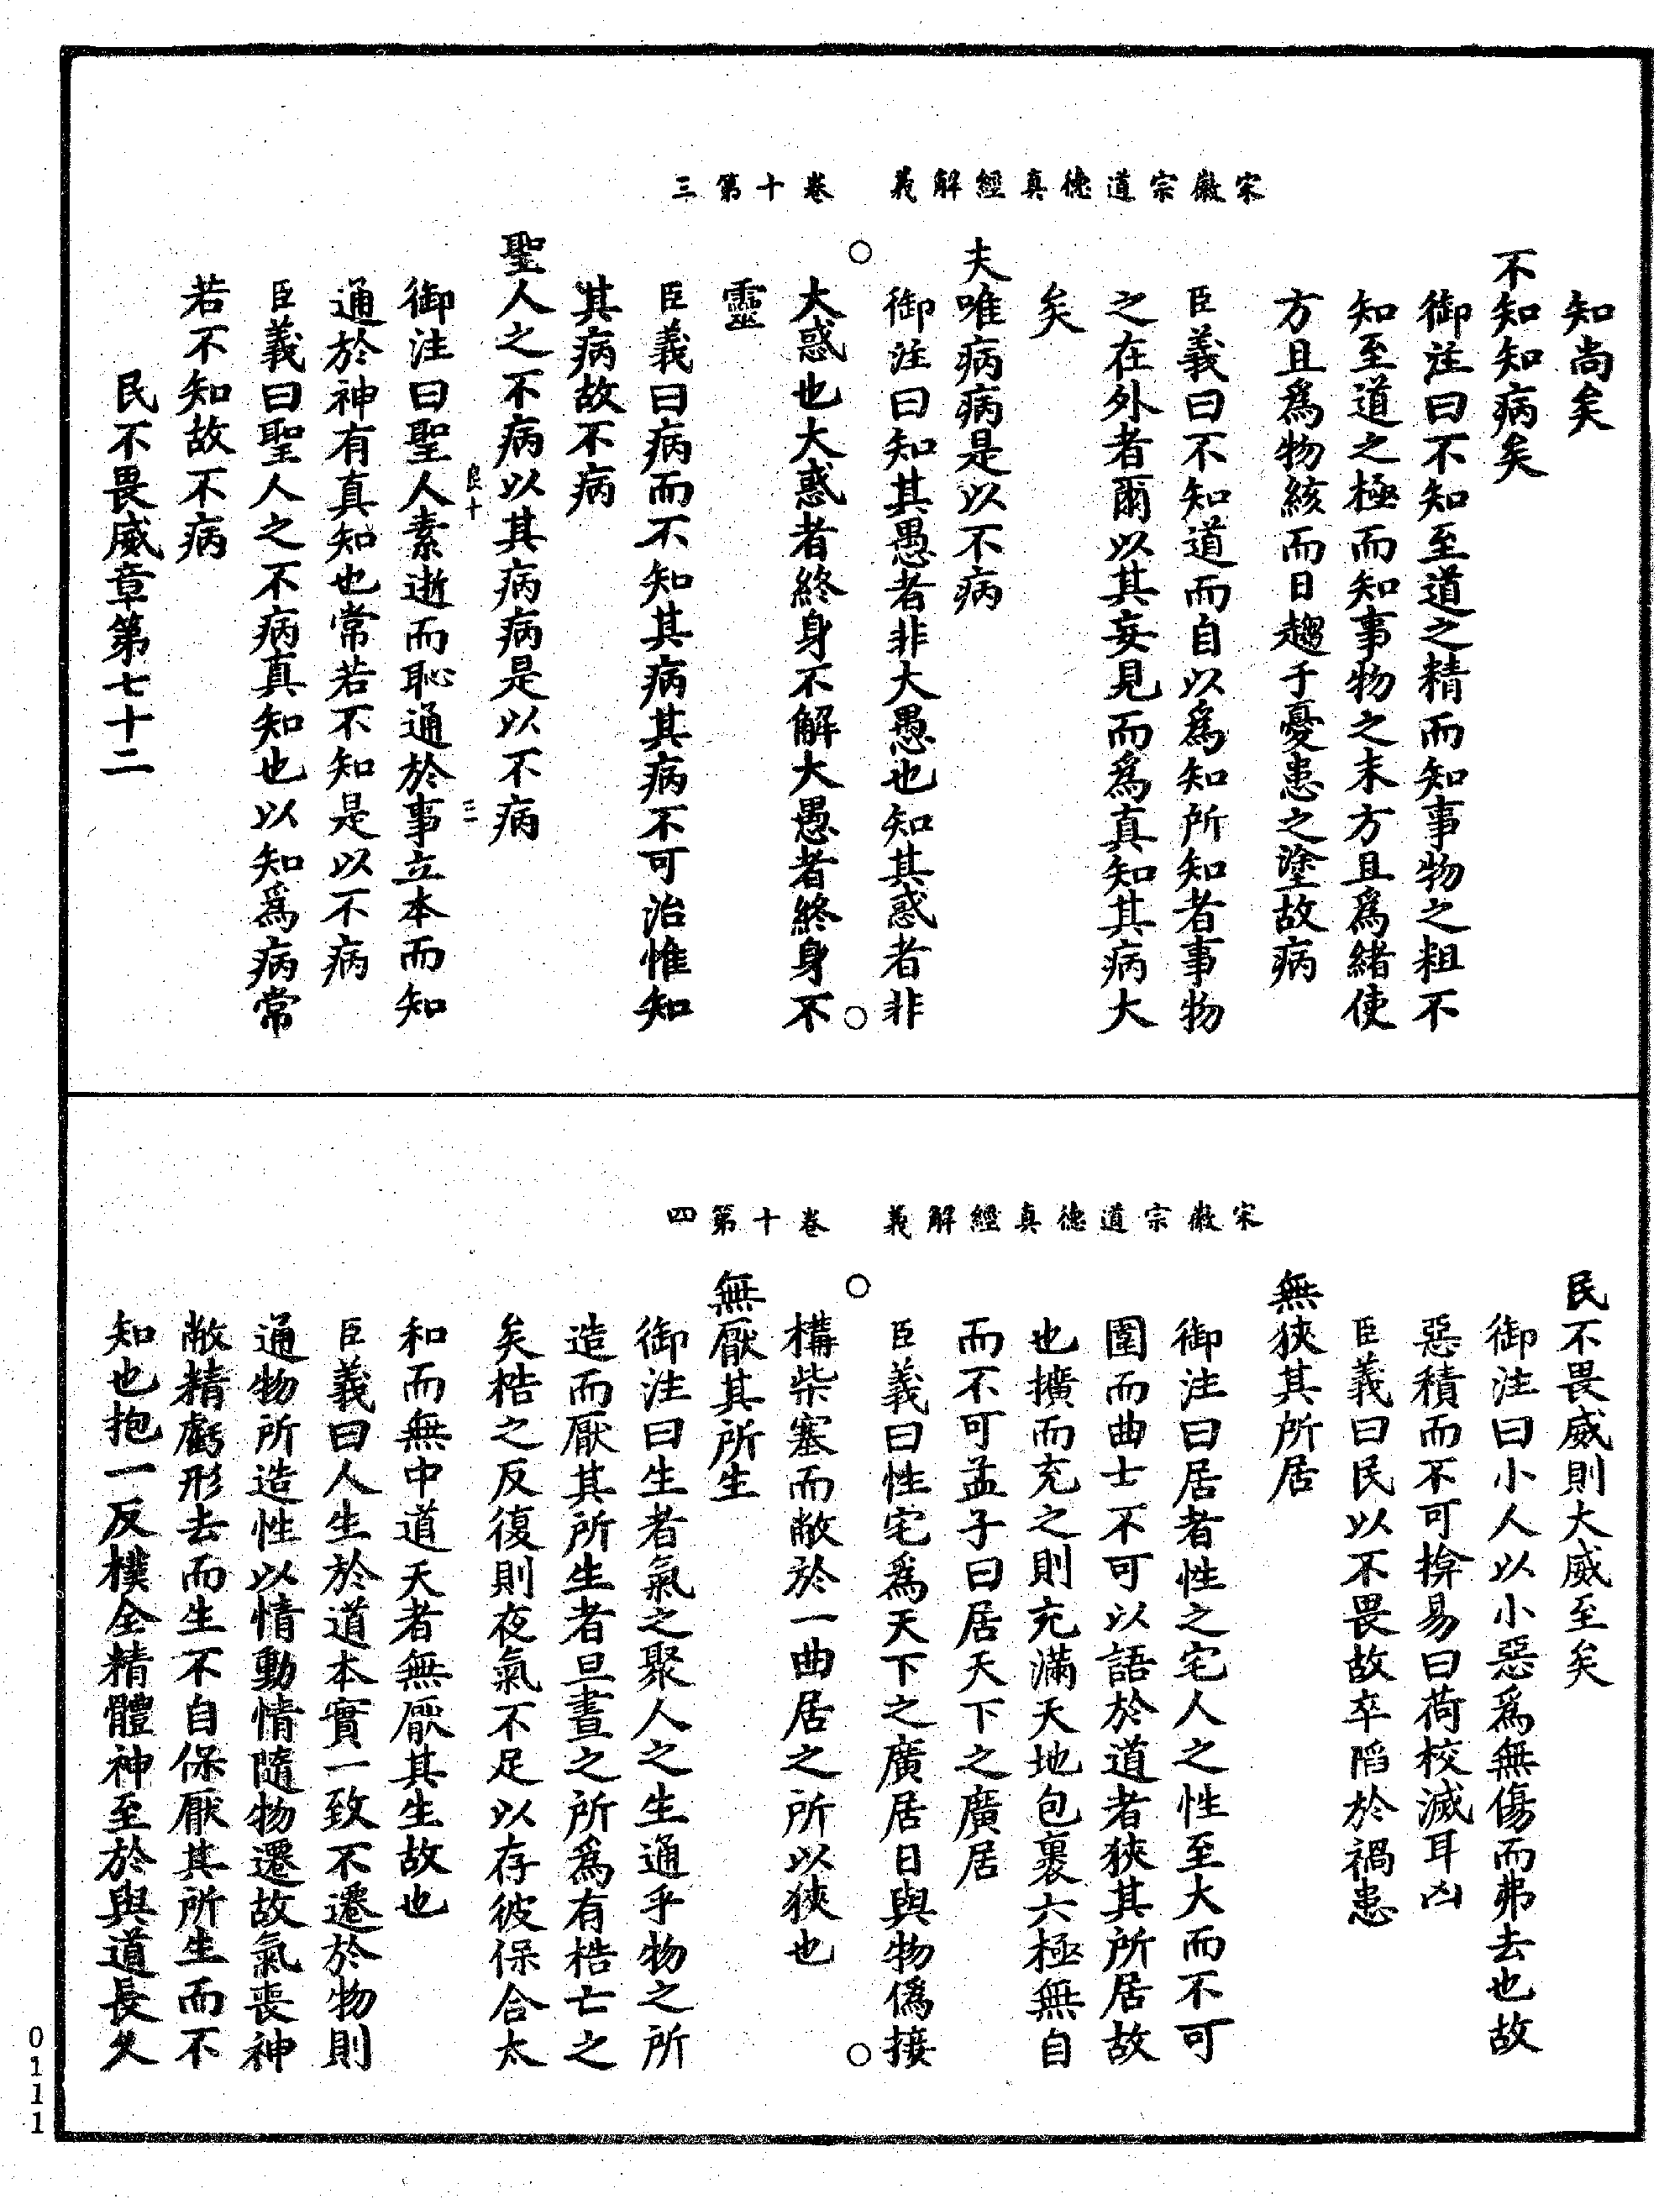 宋徽宗道德真經解義　卷十第三
知尚矣
不知知病矣
御注曰不知至道之精而知事物之粗不
知至道之極而知事物之末方且爲緒使
方且爲物絃而日趨于憂患之塗故病
臣義曰不知道而自以爲知所知者事物
之在外者爾以其妄見而爲真知其病大
矣
夫唯病病是以不病
御注曰知其愚者非大愚也知其惑者非
大惑也大惑者終身不解大愚者終身不
靈
臣義曰病而不知其病其病不可治惟知
其病故不病
聖人之不病以其病病是以不病
良十　三
御注曰聖人素逝而恥通於事立本而知
通於神有真知也常若不知是以不病
臣義曰聖人之不病真知也以知爲病常
若不知故不病
民不畏威章第七十二
宋徽宗道德真經解義　卷十第四
民不畏威則大威至矣
御注曰小人以小惡爲無傷而弗去也故
惡積而不可揜易曰荷校滅耳凶
臣義曰民以不畏故卒陷於禍患
無狹其所居
御注曰居者性之宅人之性至大而不可
圍而曲士不可以語於道者狹其所居故
也擴而充之則充滿天地包裹六極無自
而不可孟子曰居天下之廣居
臣義曰性宅爲天下之廣居日與物僞接
構柴塞而敝於一曲居之所以狹也
無厭其所生
御注曰生者氣之聚人之生通乎物之所
造而厭其所生者旦晝之所爲有梏亡之
矣梏之反復則夜氣不足以存彼保合太
和而無中道夭者無厭其生故也
臣義曰人生於道本實一致不遷於物則
通物所造性以情動情隨物遷故氣喪神
敝精虧形去而生不自保厭其所生而不
知也抱一反樸全精體神至於與道長久
0111